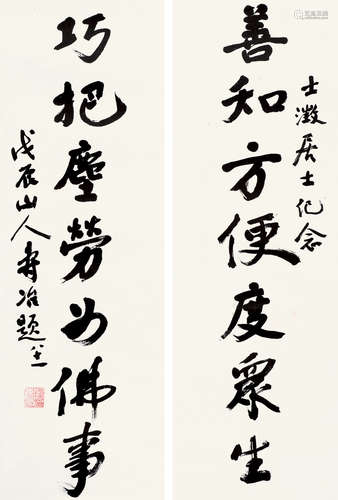 善知方便度眾生
士澂居士纪念
巧把塵勞为佛事
戊辰山人壽冶題